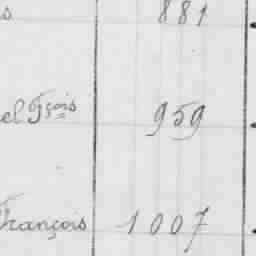 s 881
el Fçois 959
François 1007